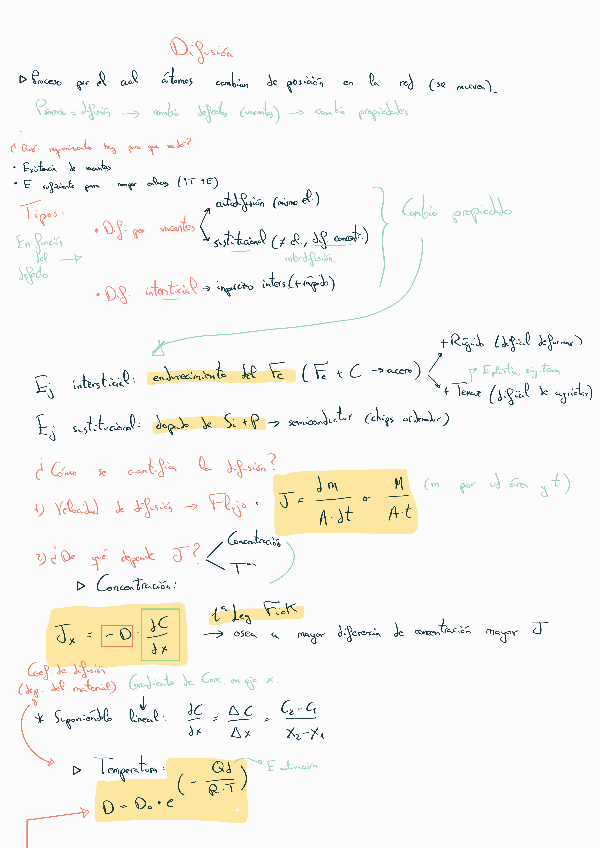 Difusión
▷ Proceso por el cual átomos cambian de posición en la red (se mueven).
Proceso = difusión → cambio defectos (vacantes) → cambia propiedades
¿Qué requerimientos hay para que se dé?
• Existencia de vacantes
• E suficiente para romper enlaces (↑T ↑E)
Tipos:
En función del defecto →
• Dif. por vacantes
autodifusión (mismo el.)
sustitucional (≠ el., dif. concentr.)
interdifusión
• Dif. intersticial → ingreso inters (+ rápido)
Cambio propiedades
Ej intersticial: endurecimiento del Fe (Fe + C → acero)
+ Rígido (difícil deformar)
+ Tenaz (difícil de agrietar)
Ej sustitucional: dopado de Si + P → semiconductor (chips ordenador)
¿Cómo se cuantifica la difusión?
1) Velocidad de difusión → Flujo. J = dm / A·dt o M / A·t (m por ud área y t)
2) ¿De qué depende J?
Concentración
Tª
▷ Concentración:
1ª Ley Fick
Jx = -D · dC/dx → osea a mayor diferencia de concentración mayor J
Coef. de difusión
(dep. del material)
Gradiente de Conc. en eje x.
* Suponiéndolo lineal: dC/dx = ΔC/Δx = C2-C1 / X2-X1
▷ Temperatura:
D = D0 · e (- Qd / R·T)
E activación